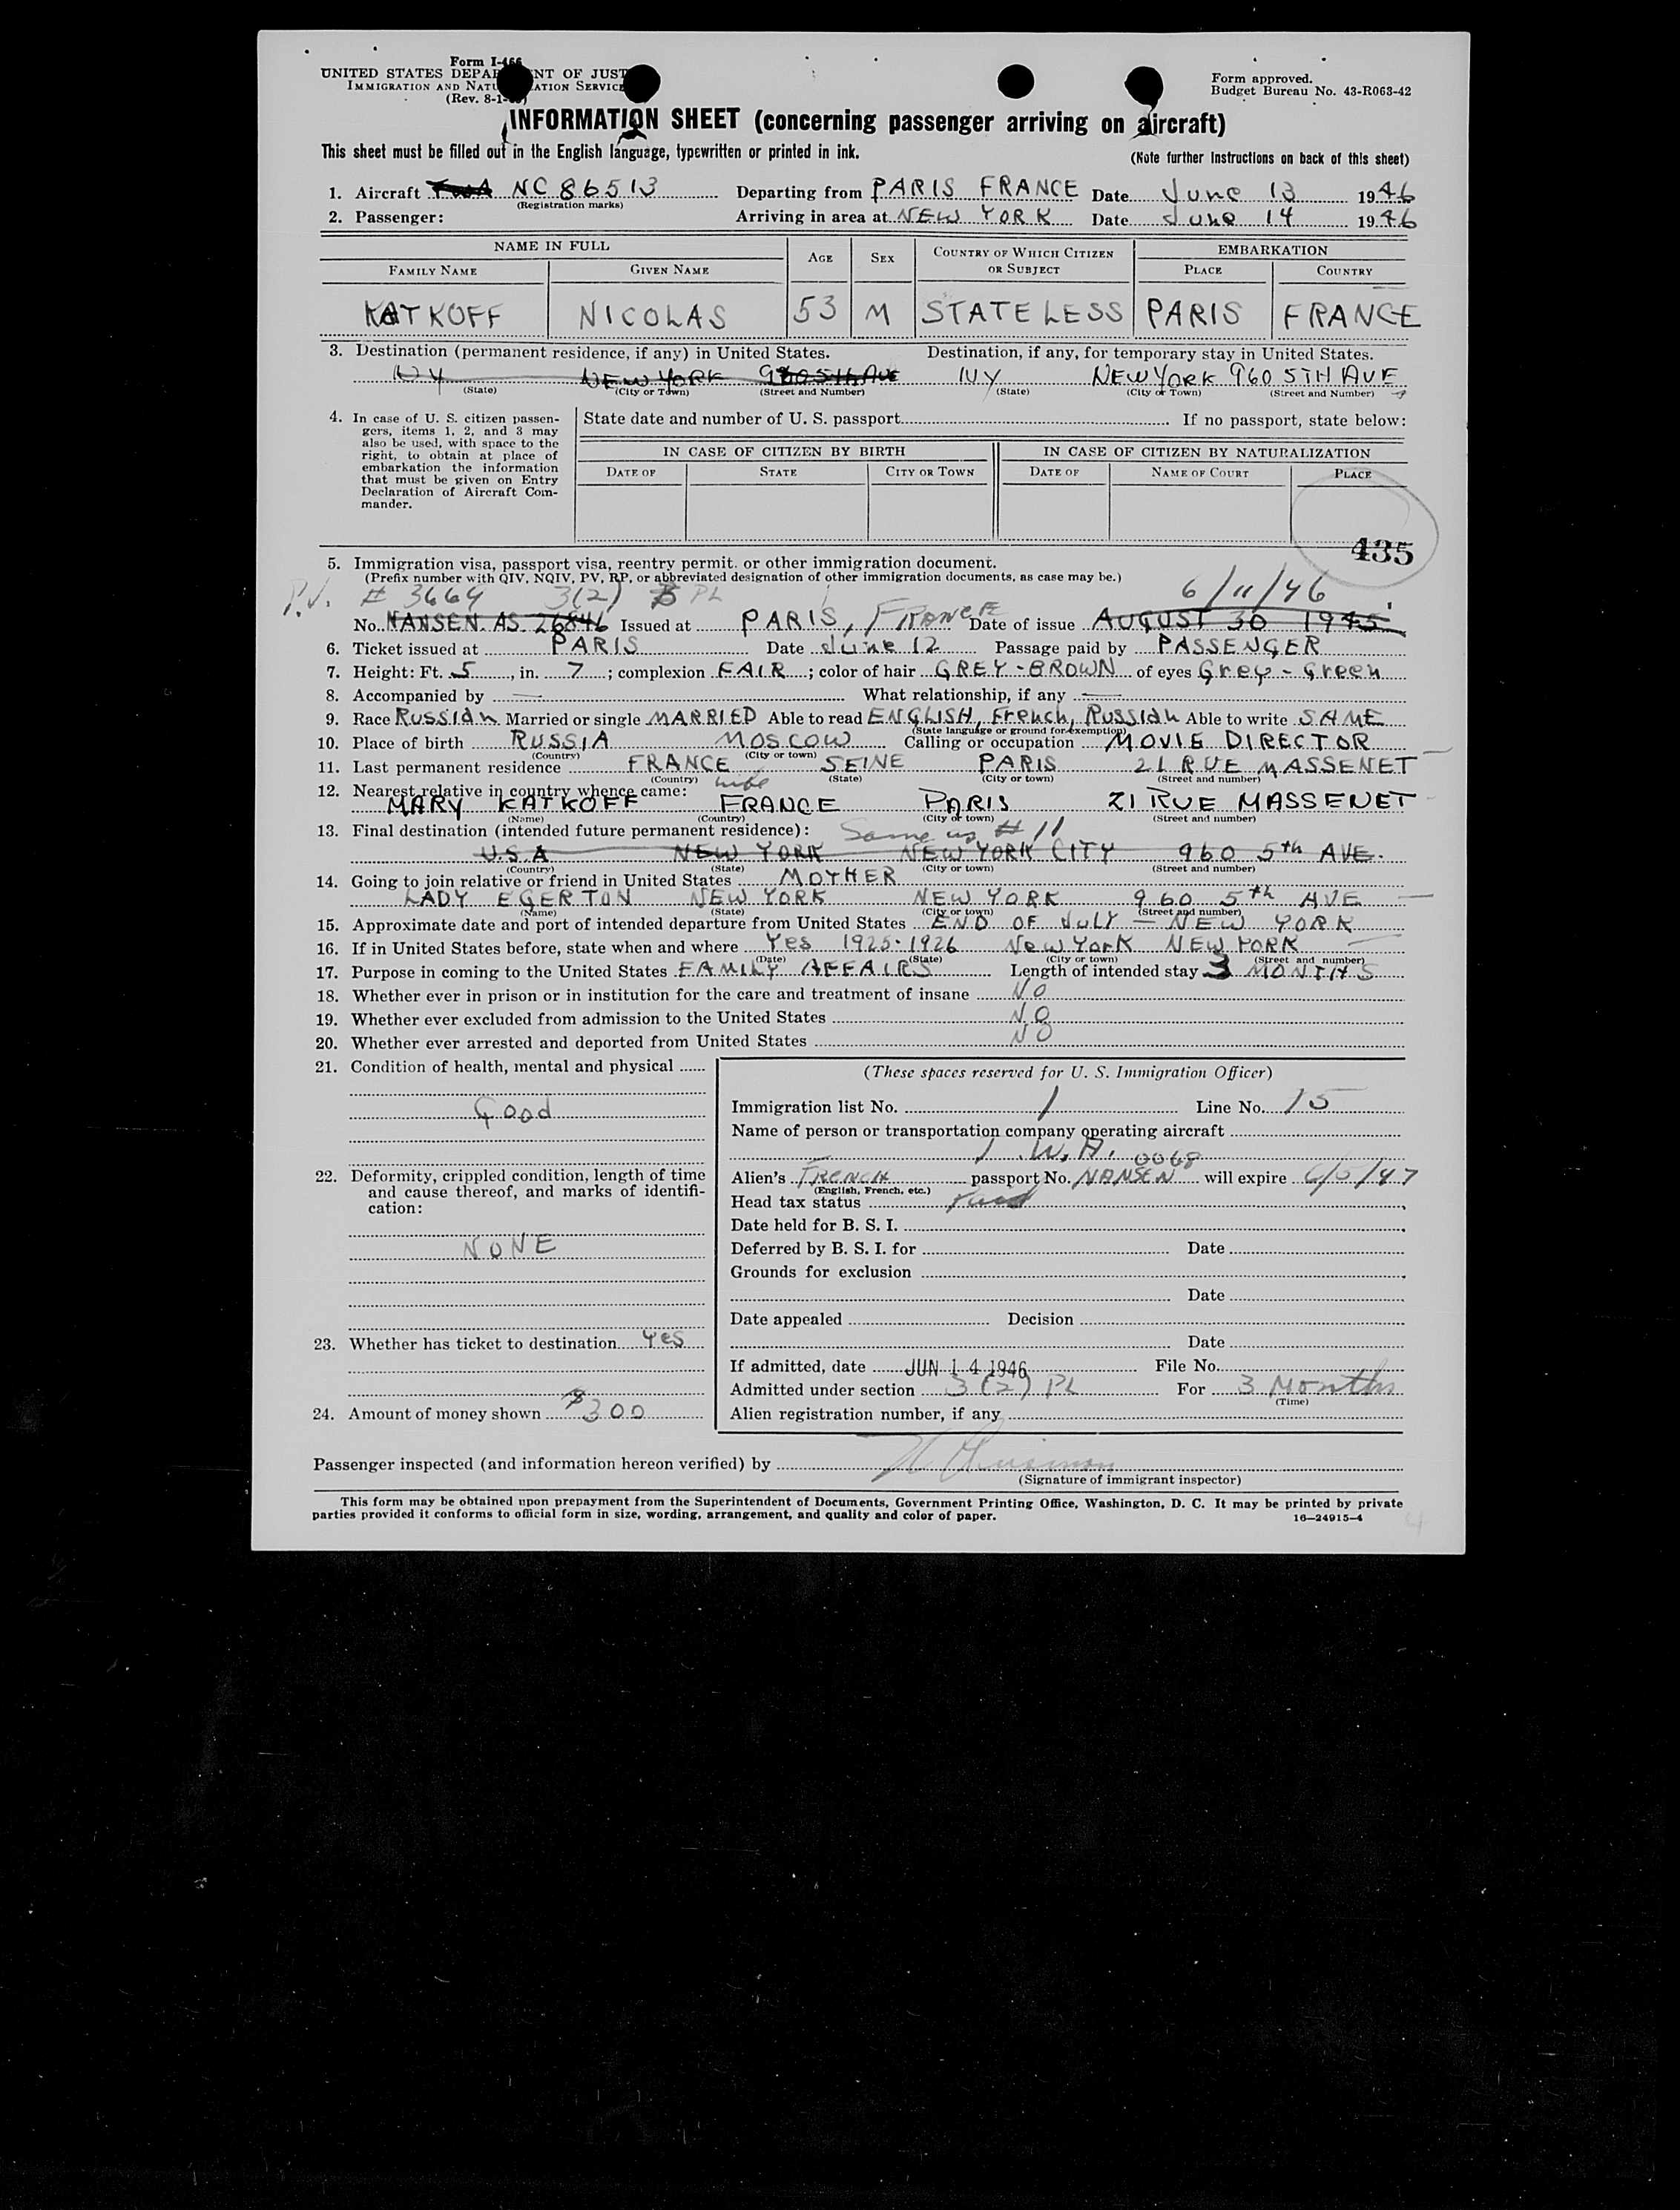 Form I-466
UNITED STATES DEPARTMENT OF JUSTICE
IMMIGRATION AND NATURALIZATION SERVICE
(Rev. 8-1-
Form approved.
Budget Bureau No. 43-R063-42
INFORMATION SHEET (concerning passenger arriving on aircraft)
This sheet must be filled out in the English language, typewritten or printed in ink.
(Note further instructions on back of this sheet)
1. Aircraft TWA NC 86513 Departing from PARIS FRANCE Date June 13 1946
(Registration marks)
2. Passenger: Arriving in area at NEW YORK Date June 14 1946
NAME IN FULL AGE SEX COUNTRY OF WHICH CITIZEN OR SUBJECT EMBARKATION
FAMILY NAME GIVEN NAME PLACE COUNTRY
KATKOFF NICOLAS 53 M STATELESS PARIS FRANCE
3. Destination (permanent residence, if any) in United States. Destination, if any, for temporary stay in United States.
NY NEW YORK 960 5th AVE NY NEW YORK 960 5TH AVE
(State) (City or Town) (Street and Number) (State) (City or Town) (Street and Number)
4. In case of U. S. citizen passen-
gers, items 1, 2, and 3 may
also be used, with space to the
right, to obtain at place of
embarkation the information
that must be given on Entry
Declaration of Aircraft Com-
mander.
State date and number of U. S. passport If no passport, state below:
IN CASE OF CITIZEN BY BIRTH IN CASE OF CITIZEN BY NATURALIZATION
DATE OF STATE CITY OR TOWN DATE OF NAME OF COURT PLACE
435
5. Immigration visa, passport visa, reentry permit, or other immigration document.
(Prefix number with QIV, NQIV, PV, RP, or abbreviated designation of other immigration documents, as case may be.)
P.V. # 3664 3(2) PL 6/11/46
No. NANSEN. AS. 26846 Issued at PARIS, FRANCE Date of issue AUGUST 30 1945
6. Ticket issued at PARIS Date June 12 Passage paid by PASSENGER
7. Height: Ft. 5, in. 7; complexion FAIR; color of hair GREY-BROWN of eyes Grey-Green
8. Accompanied by — What relationship, if any —
9. Race Russian Married or single MARRIED Able to read ENGLISH, French, Russian Able to write SAME
(State language or ground for exemption)
10. Place of birth RUSSIA MOSCOW Calling or occupation MOVIE DIRECTOR
(Country) (City or town)
11. Last permanent residence FRANCE SEINE PARIS 21 RUE MASSENET
(Country) (State) (City or town) (Street and number)
12. Nearest relative in country whence came: wife
MARY KATKOFF FRANCE PARIS 21 RUE MASSENET
(Name) (Country) (City or town) (Street and number)
13. Final destination (intended future permanent residence): Same as # 11
U.S.A NEW YORK NEW YORK CITY 960 5th AVE.
(Country) (State) (City or town) (Street and number)
14. Going to join relative or friend in United States MOTHER
LADY EGERTON NEW YORK NEW YORK 960 5th AVE
(Name) (State) (City or town) (Street and number)
15. Approximate date and port of intended departure from United States END OF JULY — NEW YORK
16. If in United States before, state when and where Yes 1925-1926 New York NEW YORK
(Date) (State) (City or town) (Street and number)
17. Purpose in coming to the United States FAMILY AFFAIRS Length of intended stay 3 MONTHS
18. Whether ever in prison or in institution for the care and treatment of insane NO
19. Whether ever excluded from admission to the United States NO
20. Whether ever arrested and deported from United States NO
21. Condition of health, mental and physical
Good
22. Deformity, crippled condition, length of time
and cause thereof, and marks of identifi-
cation:
NONE
23. Whether has ticket to destination Yes
24. Amount of money shown $300
(These spaces reserved for U. S. Immigration Officer)
Immigration list No. 1 Line No. 15
Name of person or transportation company operating aircraft
T.W.A.
0068
Alien's French passport No. NANSEN will expire 6/5/47
(English, French, etc.)
Head tax status Paid
Date held for B. S. I.
Deferred by B. S. I. for Date
Grounds for exclusion
Date
Date appealed Decision
Date
If admitted, date JUN 14 1946 File No.
Admitted under section 3(2) PL For 3 Months
(Time)
Alien registration number, if any
Passenger inspected (and information hereon verified) by
(Signature of immigrant inspector)
This form may be obtained upon prepayment from the Superintendent of Documents, Government Printing Office, Washington, D. C. It may be printed by private
parties provided it conforms to official form in size, wording, arrangement, and quality and color of paper.
16—24915-4